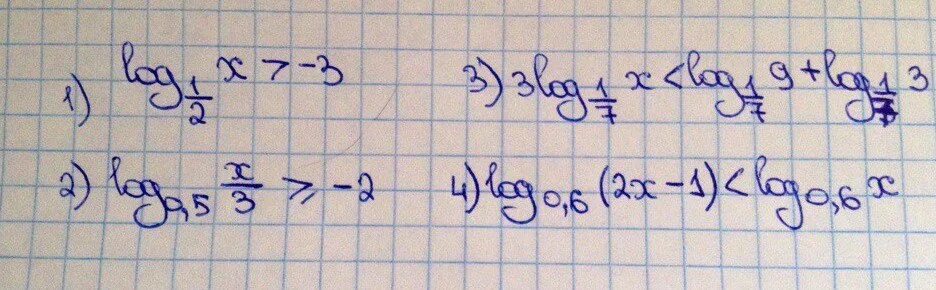 1) log_{1/2} x > -3
2) log_{0,5} x/3 ≥ -2
3) 3 log_{1/7} x < log_{1/7} 9 + log_{1/7} 3
4) log_{0,6} (2x-1) < log_{0,6} x